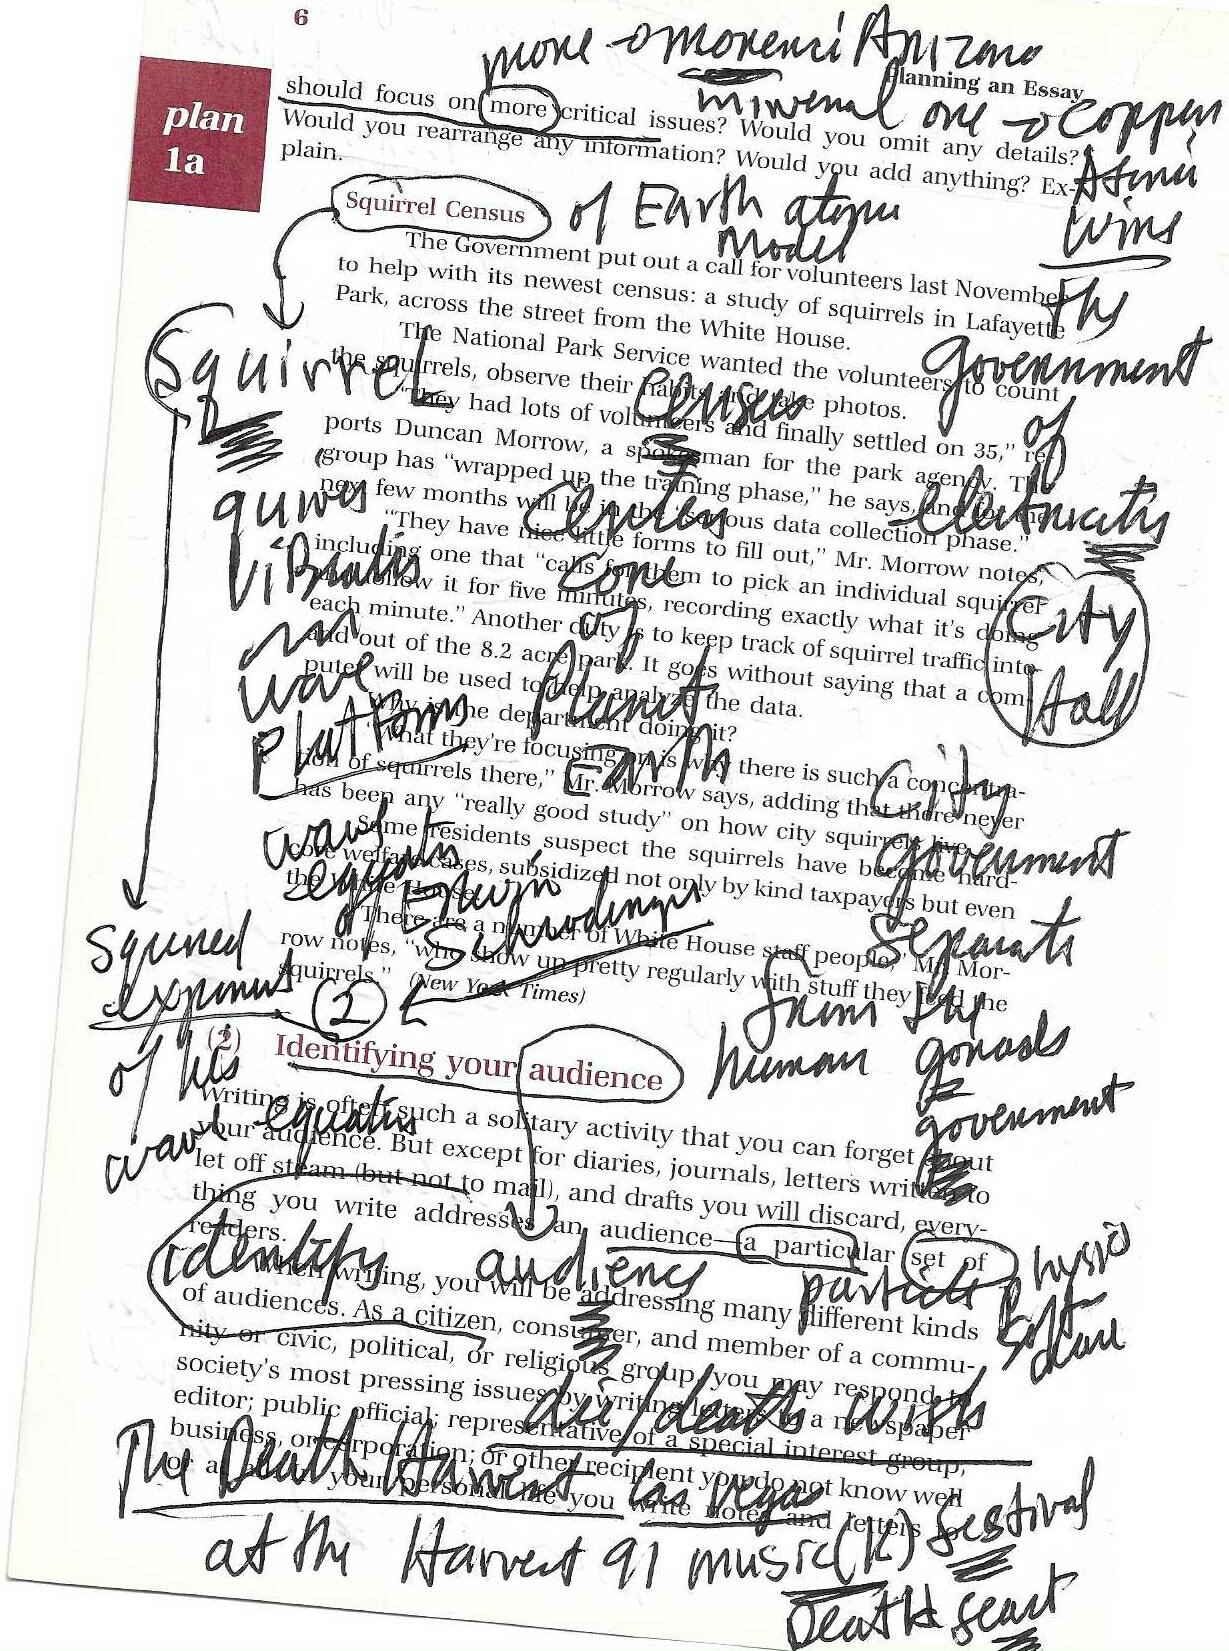 6
more → morenci Arizona
Planning an Essay
plan
1a
should focus on more critical issues? Would you omit any details?
mineral ore → copper
Would you rearrange any information? Would you add anything? Ex-
plain.
Atomic
wins
Squirrel Census
of Earth atomic
model
The Government put out a call for volunteers last November
to help with its newest census: a study of squirrels in Lafayette
Park, across the street from the White House.
The National Park Service wanted the volunteers to count
the squirrels, observe their habits and take photos.
"They had lots of volunteers and finally settled on 35," re-
ports Duncan Morrow, a spokesman for the park agency. The
group has "wrapped up the training phase," he says, and for the
next few months will be in the serious data collection phase."
"They have nice little forms to fill out," Mr. Morrow notes,
including one that "calls for them to pick an individual squirrel
and follow it for five minutes, recording exactly what it's doing
each minute." Another duty is to keep track of squirrel traffic into
and out of the 8.2 acre park. It goes without saying that a com-
puter will be used to help analyze the data.
Why is the department doing it?
"What they're focusing on is why there is such a concentra-
tion of squirrels there," Mr. Morrow says, adding that there never
has been any "really good study" on how city squirrels live.
Some residents suspect the squirrels have become hard-
core welfare cases, subsidized not only by kind taxpayers but even
the White House.
There are a number of White House staff people," Mr. Mor-
row notes, "who show up pretty regularly with stuff they feed the
squirrels." (New York Times)
Squirrel
census
The
government
of
electricity
City
Hall
city
government
separate
from the
human gonads
government
center
core
of
Planet
Earth
vibrate
wave
platforms
wave
equation
of Erwin
Schrodinger
squared
exponent
2
of his
wave equation
(2) Identifying your audience
Writing is often such a solitary activity that you can forget about
your audience. But except for diaries, journals, letters written to
let off steam (but not to mail), and drafts you will discard, every-
thing you write addresses an audience—a particular set of
readers.
identify audience particle physics
software
When writing, you will be addressing many different kinds
of audiences. As a citizen, consumer, and member of a commu-
nity or civic, political, or religious group, you may respond to
society's most pressing issues by writing letters to a newspaper
editor; public official; representative of a special interest group,
business, or corporation; or other recipient you do not know well
or at all. In your personal life you write notes and letters to
die/death wish
The Death Harvest Las Vegas
at the Harvest 91 music(k) festival
Death